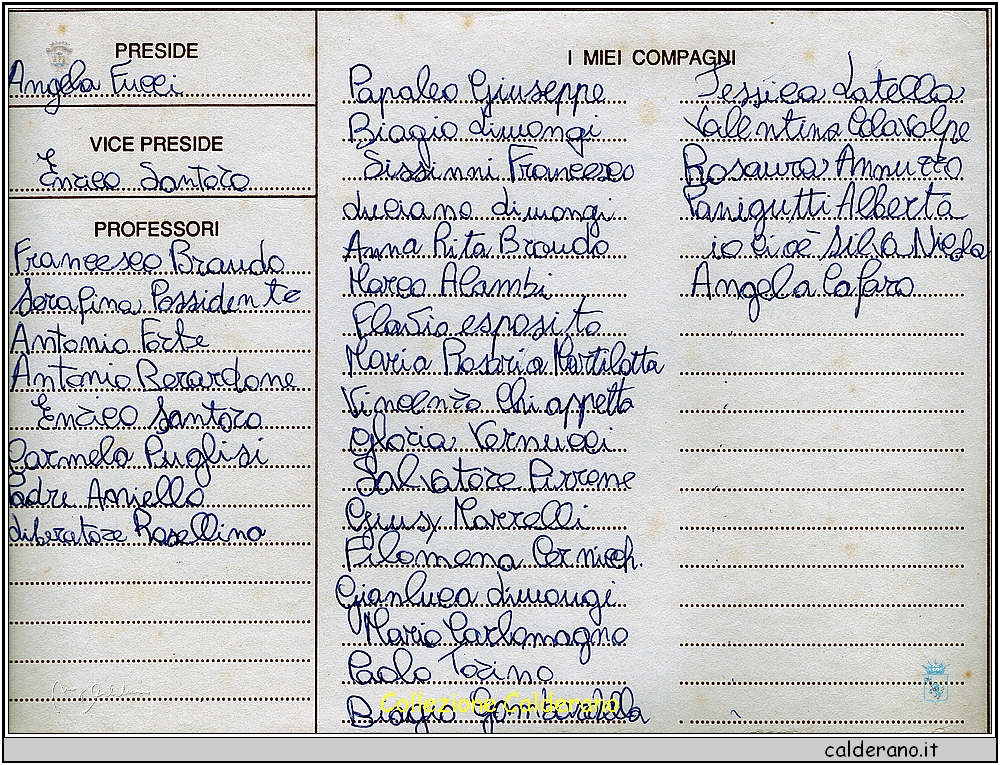 PRESIDE
Angela Fucci
VICE PRESIDE
Enrico Santoro
PROFESSORI
Francesco Brando
Serafina Possidente
Antonio Forte
Antonio Berardone
Enrico Santoro
Carmela Puglisi
Padre Aniello
Liberatore Rosellina
I MIEI COMPAGNI
Papaleo Giuseppe
Biagio Limongi
Sissinni Francesco
Luciano Limongi
Anna Rita Brando
Marco Alambi
Flavio esposito
Maria Rosaria Martilotta
Vincenzo Chiappetta
Gloria Vernucci
Salvatore Pirrone
Giusy Marrelli
Filomena Cernicch.
Gianluca Limongi
Mario Carlomagno
Paolo Torino
Biagio
Jessica Latella
Valentina Colavolpe
Rosaura Annuzzo
Panigutti Alberta
io cioè Silva Nicola
Angela Cafaro
Collezione Calderano
calderano.it